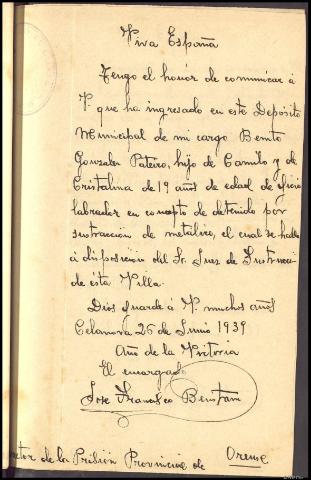 Viva España
Tengo el honor de comunicar á
V. que ha ingresado en este Depósito
Municipal de mi cargo Benito
Gonzalez Pateiro, hijo de Camilo y de
Cristalina de 19 años de edad de oficio
labrador en concepto de detenido por
sustraccion de metalico, el cual se halla
á disposicion del Sr. Juez de Instrucci
de ésta Villa.
Dios guarde á V. muchos años
Celanova 26 de Junio 1939
Año de la Victoria
El encargado
Jose Francisco
ctor de la Prisión Provincial de Orense